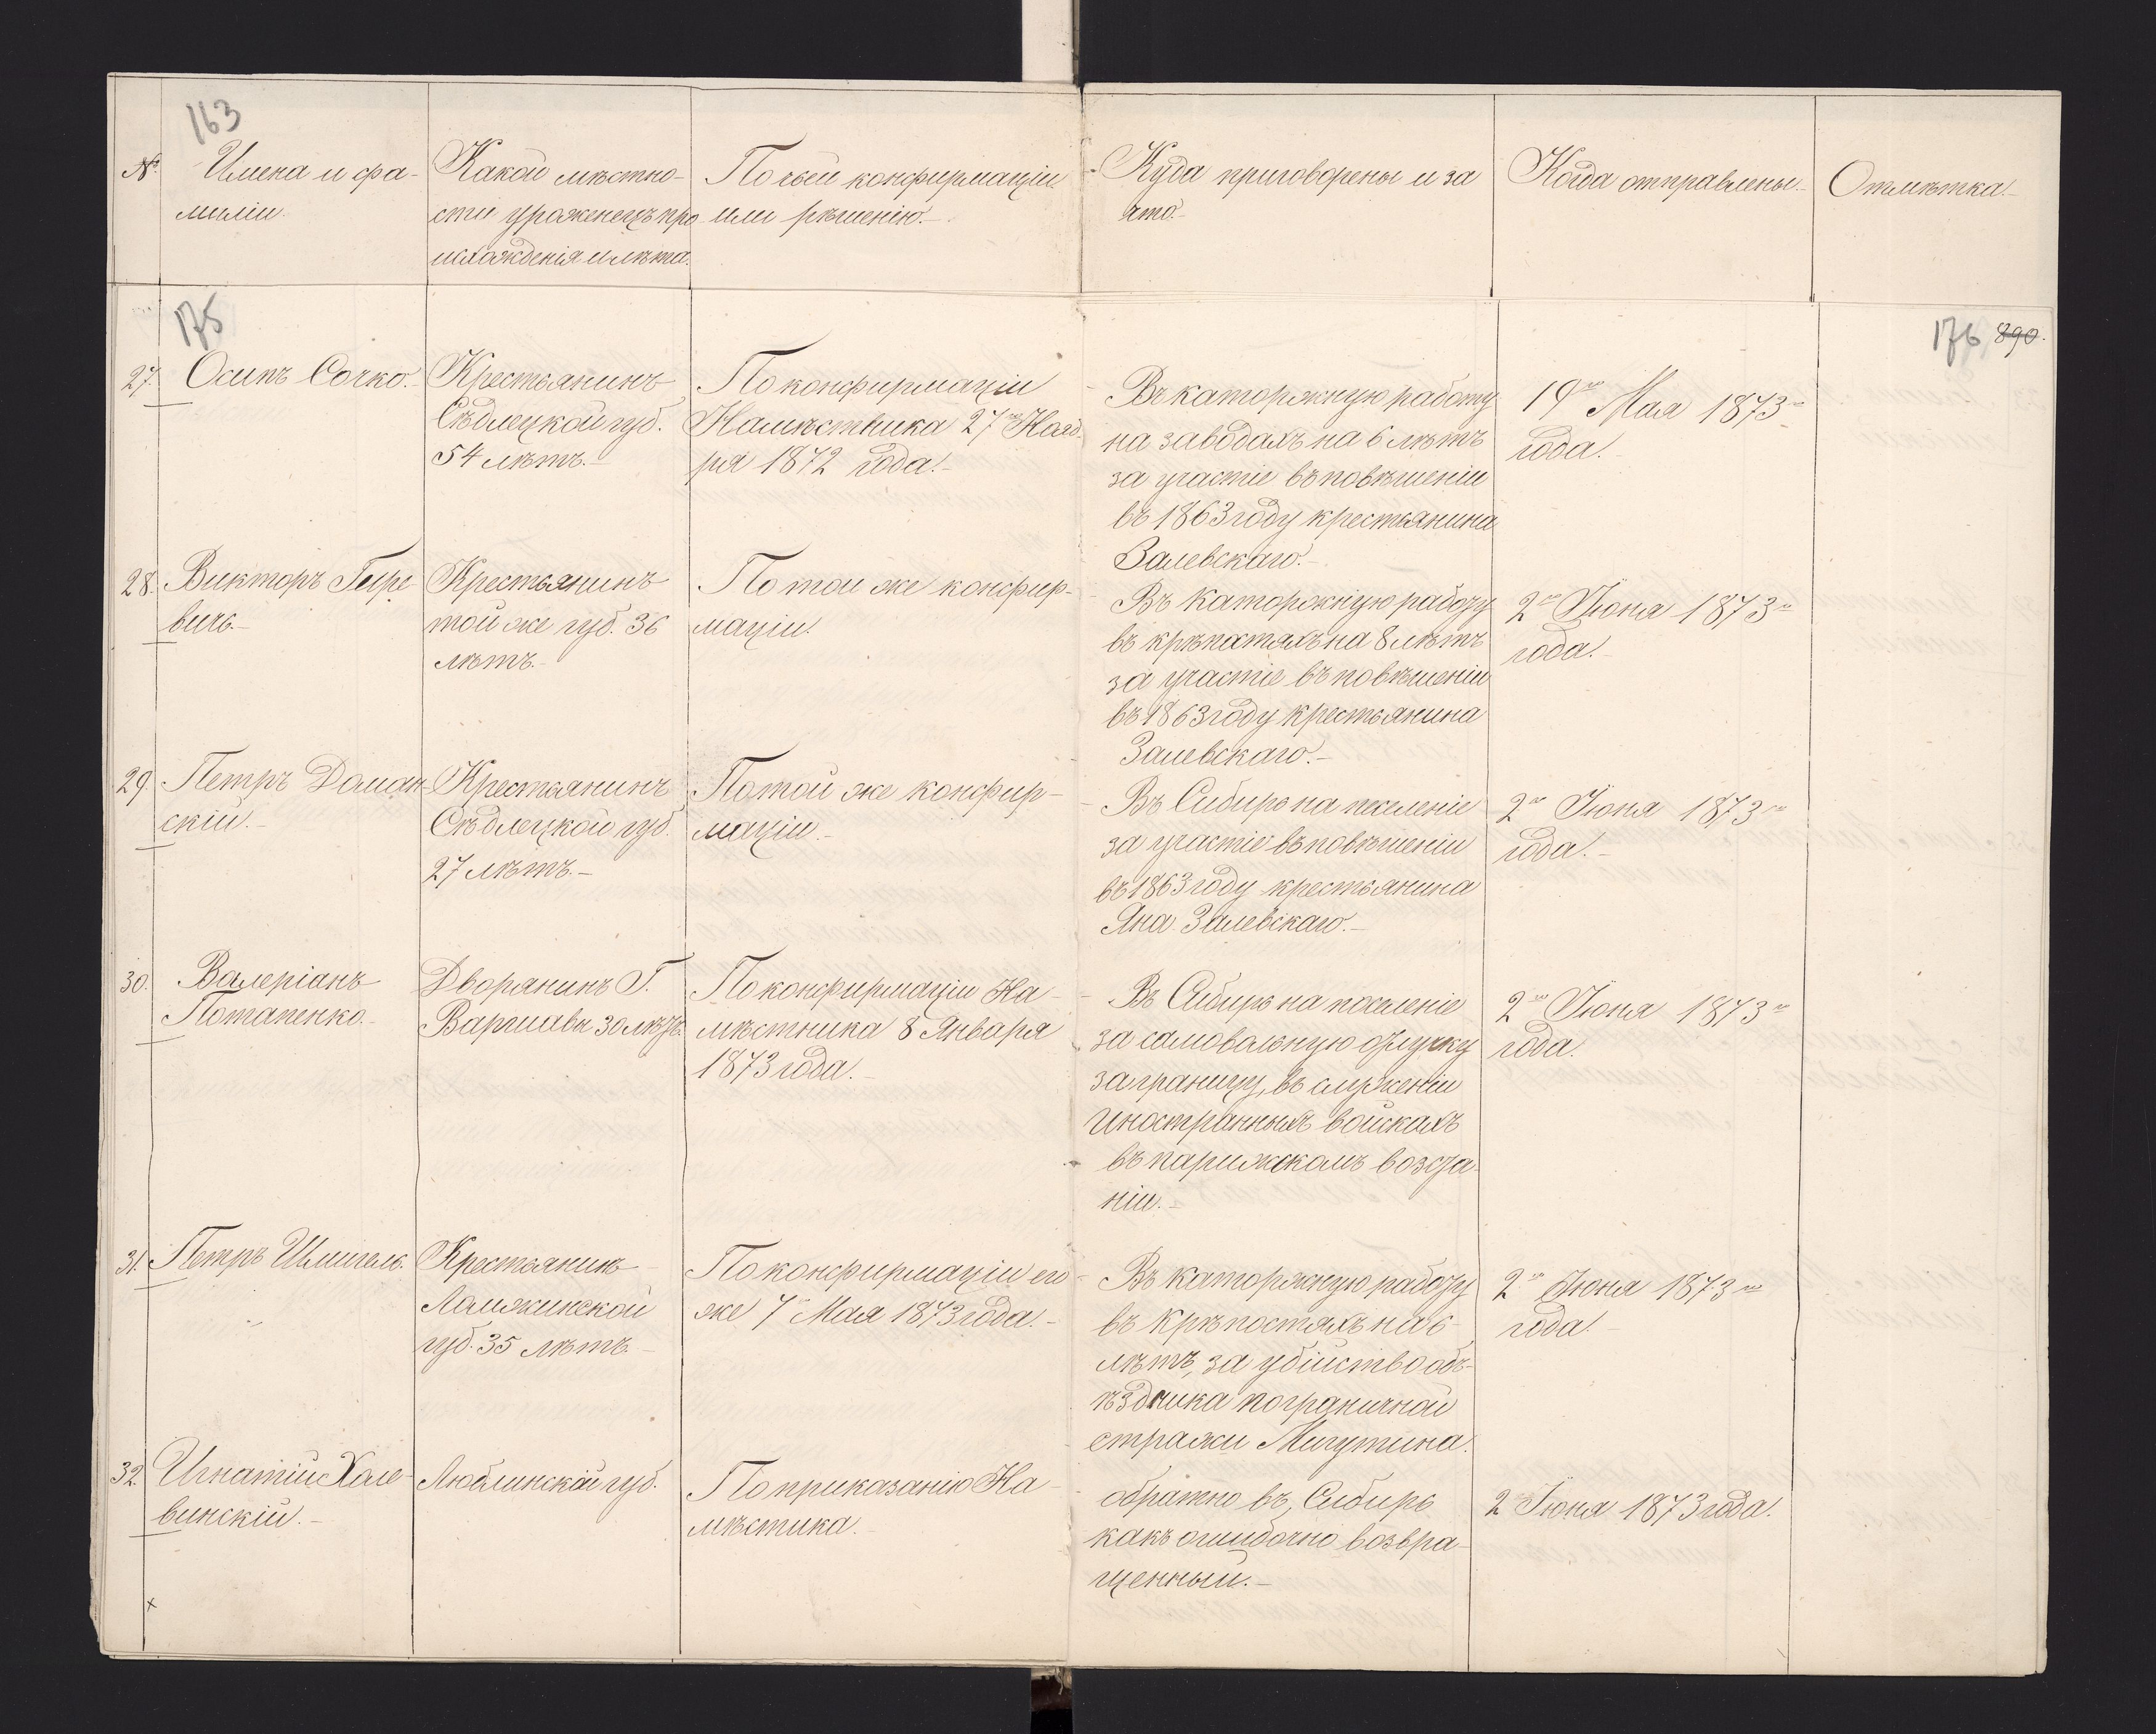 163
№
Имена и фа-
миліи.
Какой мѣстно-
сти уроженецъ про
исхожденія и лѣта.
По чьей конфирмаціи
или рѣшенію.
Куда приговорены и за
что.
Когда отправлены.
Отмѣтка.
175
176 890.
27.
Осипъ Сочко.
Крестьянинъ
Сѣдлецкой губ.
54 лѣтъ.
По конфирмаціи
Намѣстника 27го Нояб-
ря 1872 года.
Въ каторжную работу
на заводахъ на 6 лѣтъ
за участіе въ повѣшеніи
въ 1863 году крестьянина
Залевскаго.
19го Мая 1873го
года.
28.
Викторъ Гире
вичъ.
Крестьянинъ
той же губ. 36
лѣтъ.
По той же конфир-
маціи.
Въ каторжную работу
въ крѣпостяхъ на 8 лѣтъ
за участіе въ повѣшеніи
въ 1863 году крестьянина
Залевскаго.
2го Іюня 1873го
года.
29.
Петръ Доман-
скій.
Крестьянинъ
Сѣдлецкой губ.
27 лѣтъ.
По той же конфир-
маціи.
Въ Сибирь на поселеніе
за участіе въ повѣшеніи
въ 1863 году крестьянина
Яна Залевскаго.
2го Іюня 1873го
года.
30.
Валеріанъ
Потапенко.
Дворянинъ Г.
Варшавы 30 лѣтъ.
По конфирмаціи На-
мѣстника 8 Января
1873 года.
Въ Сибирь на поселеніе
за самовольную отлучку
заграницу, въ служеніи
Иностранныхъ войскахъ
въ парижскомъ возста-
ніи.
2го Іюня 1873го
года.
31.
Петръ Шмигель.
Крестьянинъ
Ломжинской
губ. 35 лѣтъ.
По конфирмаціи его
же 7 Мая 1873 года.
Въ каторжную работу
въ крѣпостяхъ на 6
лѣтъ, за убійство объ-
ѣздчика пограничной
стражи Мигутина.
2го Іюня 1873го
года.
32.
Игнатій Холе-
винскій.
Люблинской губ.
По приказанію На-
мѣстика.
обратно въ Сибирь
какъ ошибочно возвра-
щенный.
2 Іюня 1873 года.
x